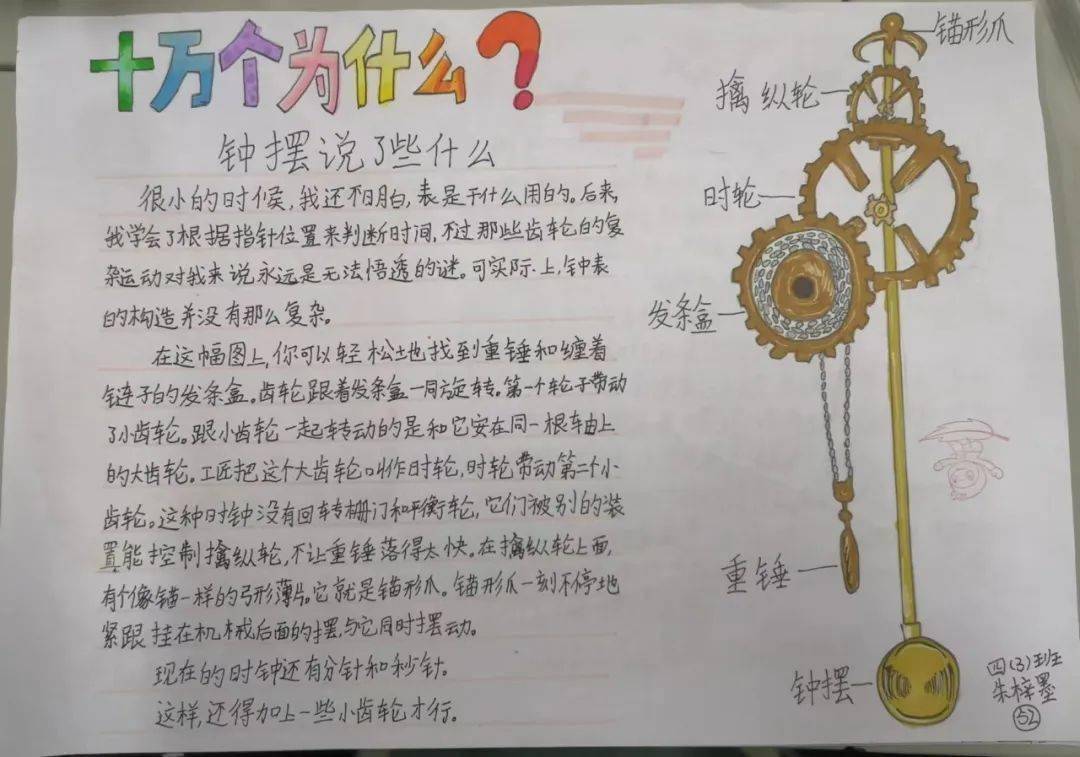 十万个为什么?
钟摆说了些什么
很小的时候,我还不明白,表是干什么用的。后来,
我学会了根据指针位置来判断时间,不过那些齿轮的复
杂运动对我来说永远是无法悟透的谜。可实际上,钟表
的构造并没有那么复杂。
在这幅图上,你可以轻松地找到重锤和缠着
链子的发条盒。齿轮跟着发条盒一同旋转。第一个轮子带动
了小齿轮。跟小齿轮一起转动的是和它安在同一根车由上
的大齿轮。工匠把这个大齿轮叫作时轮,时轮带动第二个小
齿轮。这种时钟没有回转栅门和平衡轮,它们被别的装
置能控制擒纵轮,不让重锤落得太快。在擒纵轮上面,
有个像锚一样的弓形薄片。它就是锚形爪。锚形爪一刻不停地
紧跟挂在机械后面的摆,与它同时摆动。
现在的时钟还有分针和秒针。
这样,还得加上一些小齿轮才行。
锚形爪
擒纵轮
时轮
发条盒
重锤
钟摆
四(3)班
朱梓墨
52